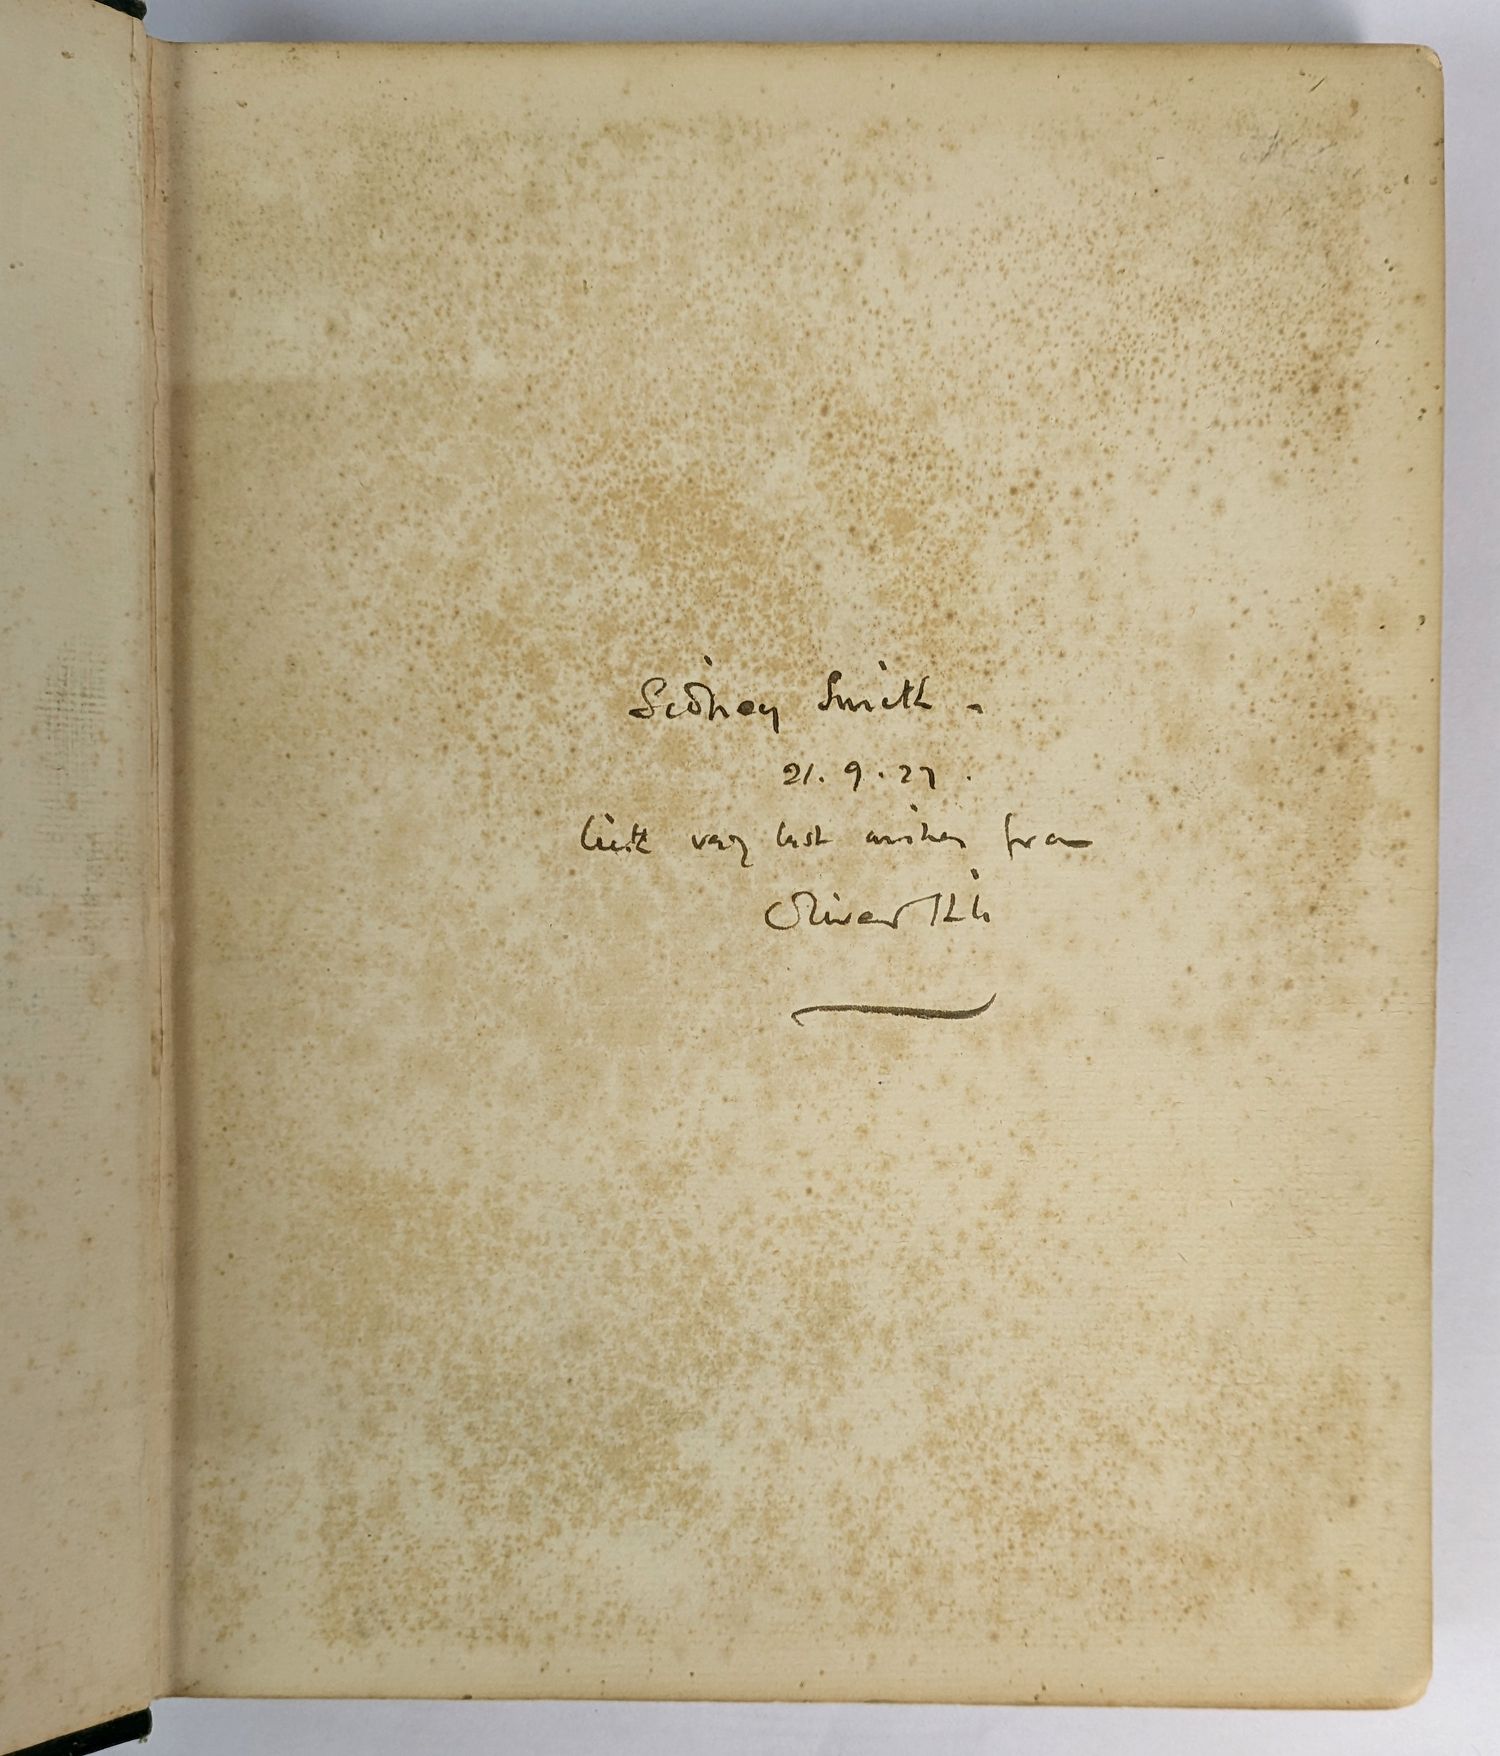 Sidney Smith -
21. 9. 27.
with very best wishes from
Oliver Hill